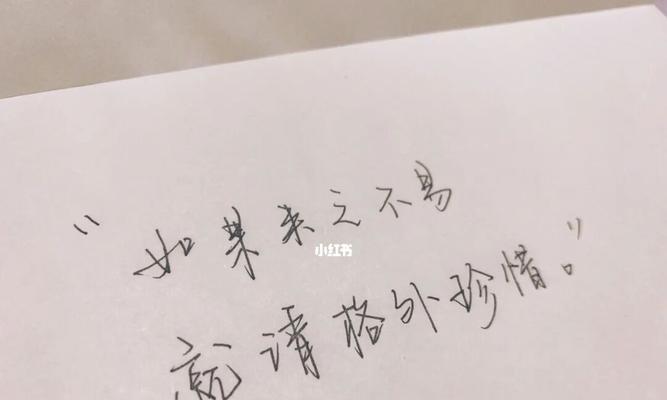 “如果来之不易
小红书
就请格外珍惜。”